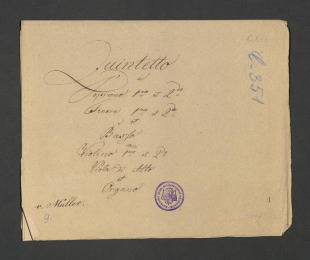 Quintetto
a
Soprano 1mo e 2do
Tenore 1mo e 2do
et
Basso
Violino 1mo e 2do
Viola di Alto
et
Organo
v. Müller.
9.
C-351